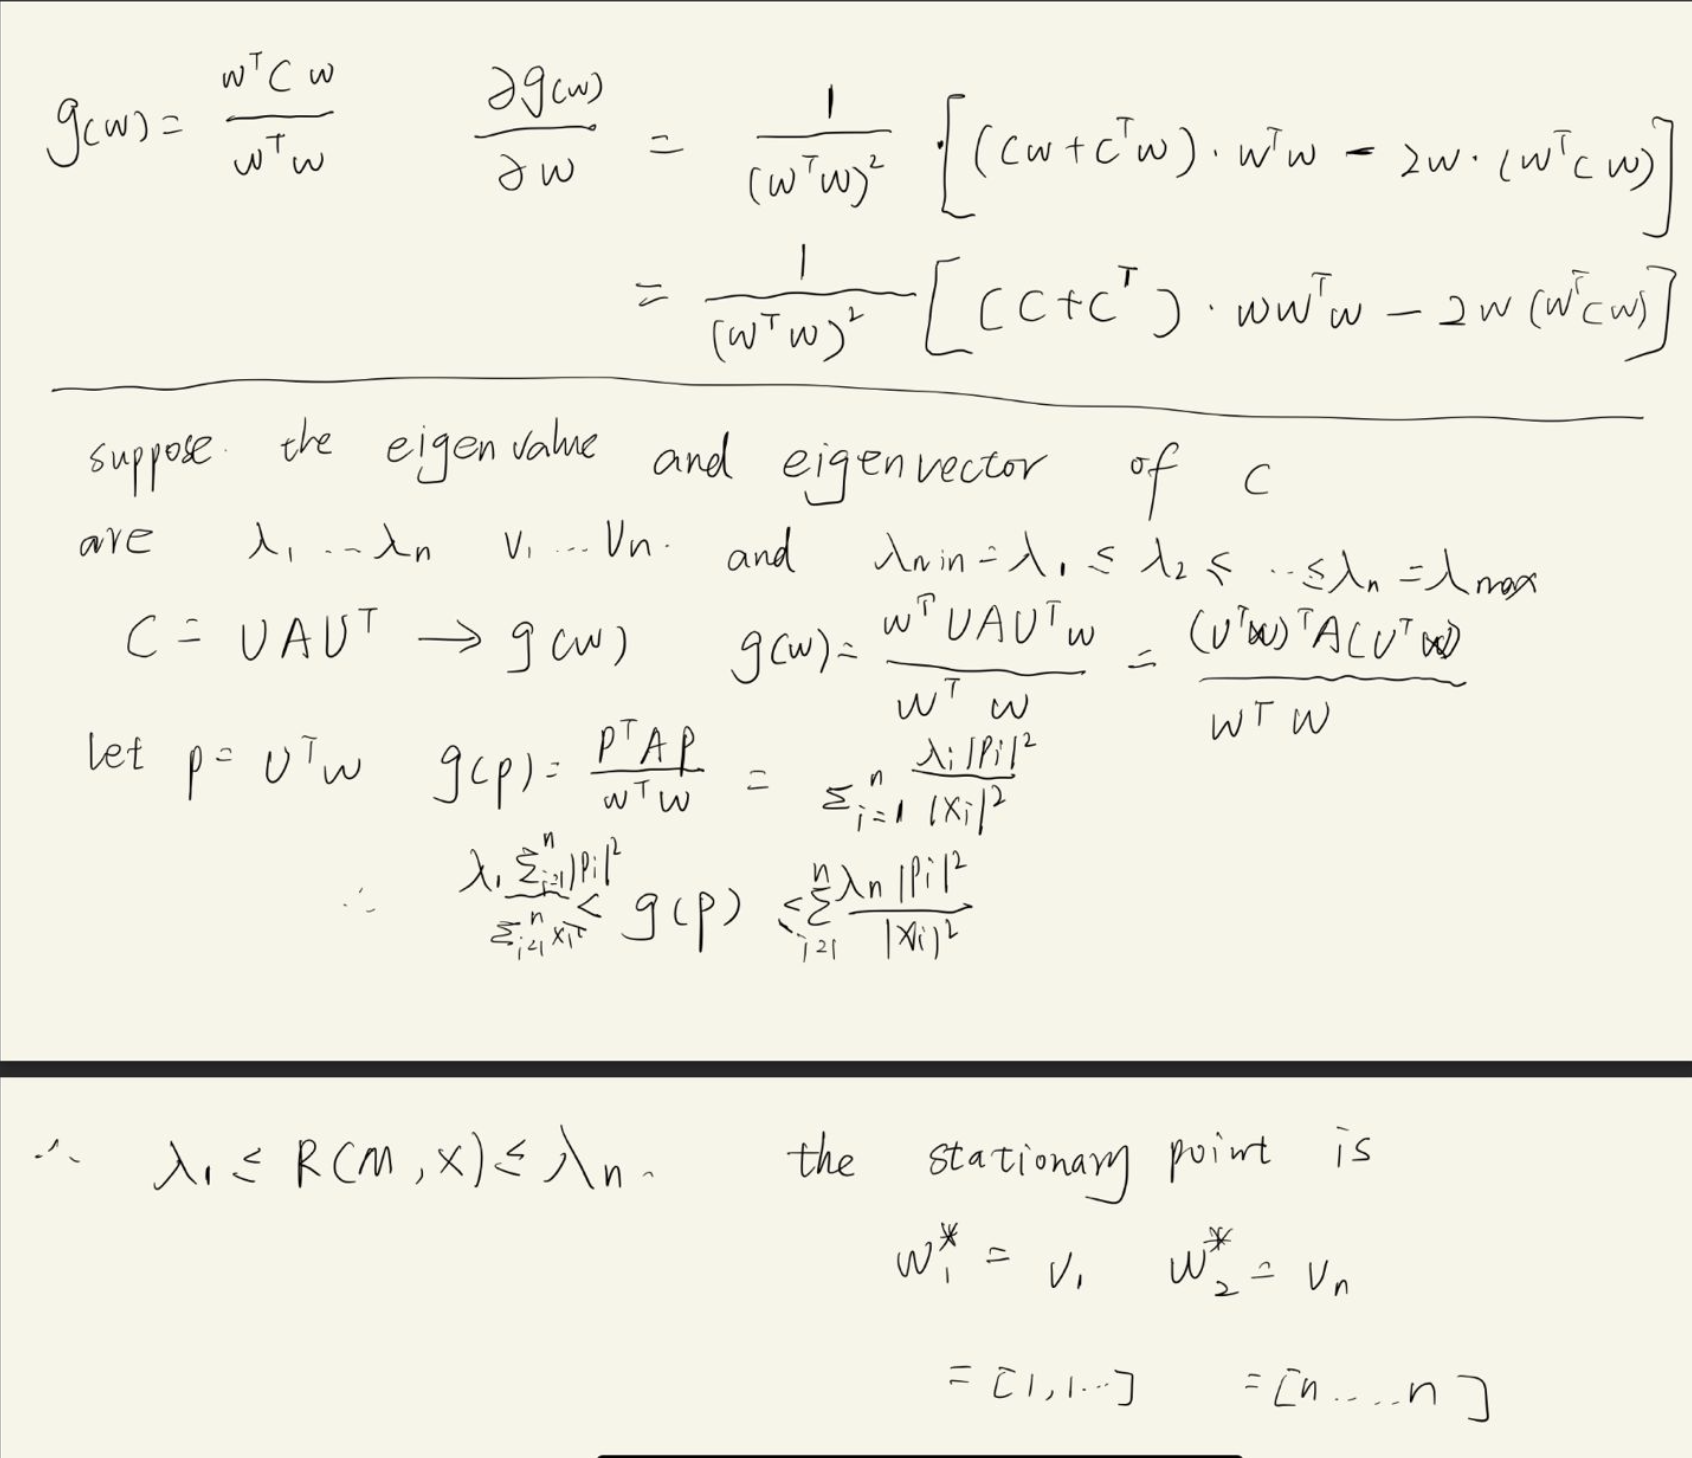 g(w) = wᵀCw / wᵀw    ∂g(w)/∂w = 1/(wᵀw)² · [(Cw + Cᵀw) · wᵀw − 2w · (wᵀCw)]
= 1/(wᵀw)² [(C + Cᵀ) · wwᵀw − 2w (wᵀCw)]
suppose. the eigenvalue and eigenvector of C
are λ₁ ... λn  v₁ ... vn. and λmin = λ₁ ≤ λ₂ ≤ ... ≤ λn = λmax
C = UAUᵀ → g(w)  g(w) = wᵀUAUᵀw / wᵀw = (Uᵀw)ᵀA(Uᵀw) / wᵀw
let p = Uᵀw  g(p) = pᵀAp / wᵀw = Σⁿᵢ₌₁ λi|Pi|² / |xi|²
∴ λ₁ Σⁿᵢ₌₁|Pi|² / Σⁿᵢ₌₁ xi² < g(p) ≤ Σⁿᵢ₌₁ λn|Pi|² / |xi|²
∴ λ₁ ≤ R(M, x) ≤ λn.  the stationary point is
w₁* = v₁  w₂* = vn
= [1, 1...]  = [n.....n]